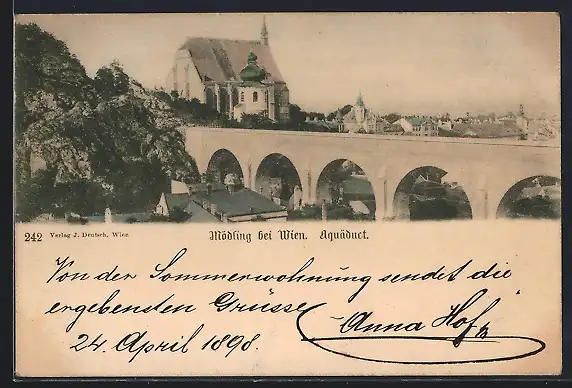 242 Verlag J. Deutsch, Wien
Mödling bei Wien. Aquäduct.
Von der Sommerwohnung sendet die
ergebensten Grüsse
Anna Hof
24. April 1898.